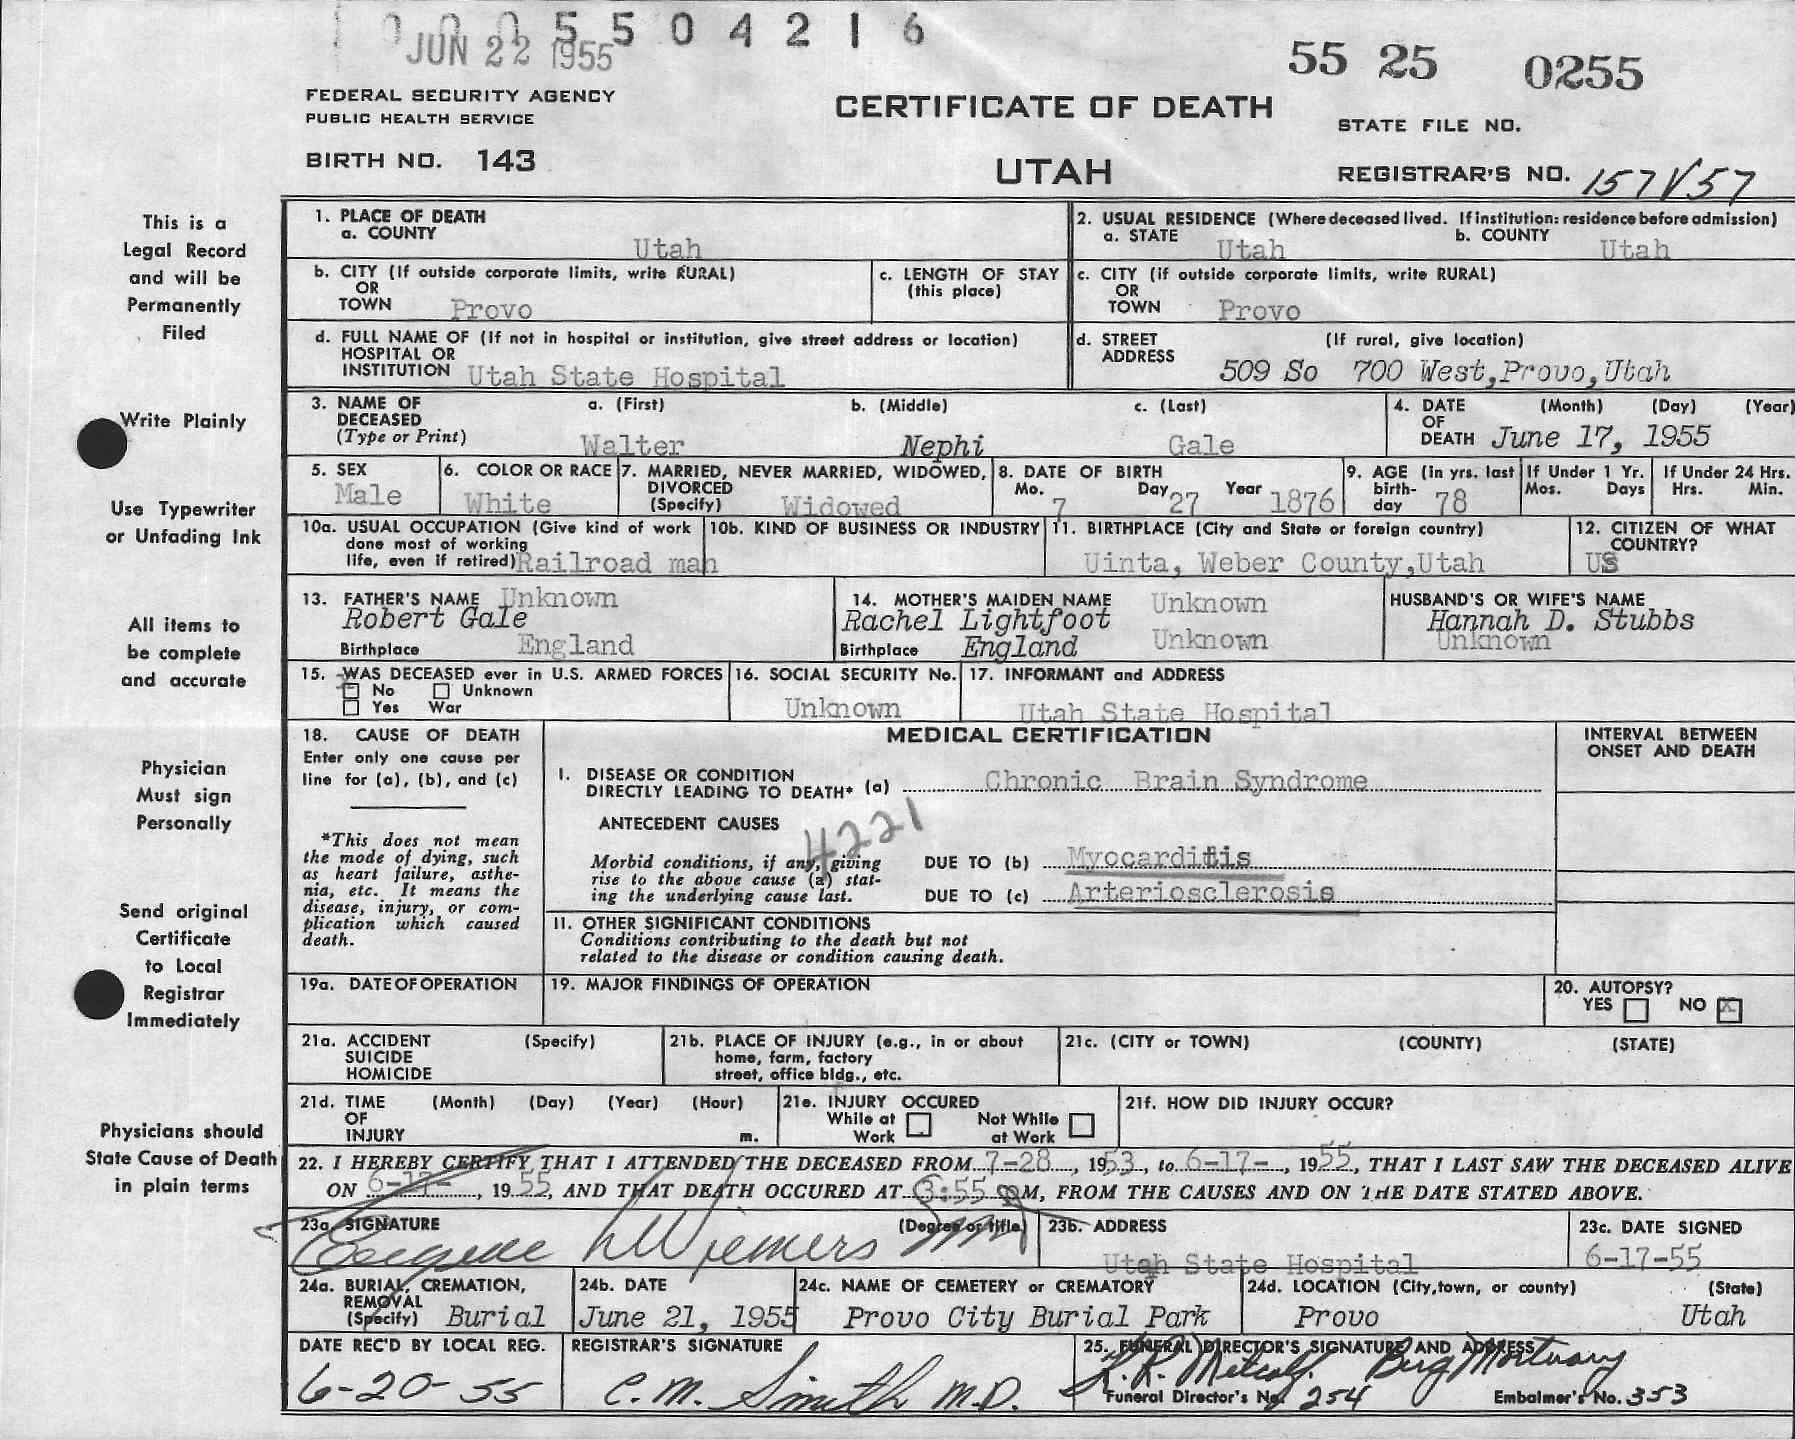 0005504216
JUN 22 1955
55 25 0255
FEDERAL SECURITY AGENCY
PUBLIC HEALTH SERVICE
CERTIFICATE OF DEATH
STATE FILE NO.
BIRTH NO. 143
UTAH
REGISTRAR'S NO. 157 V57
This is a
Legal Record
and will be
Permanently
Filed
Write Plainly
Use Typewriter
or Unfading Ink
All items to
be complete
and accurate
Physician
Must sign
Personally
Send original
Certificate
to Local
Registrar
Immediately
Physicians should
State Cause of Death
in plain terms
1. PLACE OF DEATH
a. COUNTY
Utah
2. USUAL RESIDENCE (Where deceased lived. If institution: residence before admission)
a. STATE Utah b. COUNTY Utah
b. CITY (If outside corporate limits, write RURAL)
OR
TOWN Provo
c. LENGTH OF STAY
(this place)
c. CITY (if outside corporate limits, write RURAL)
OR
TOWN Provo
d. FULL NAME OF (If not in hospital or institution, give street address or location)
HOSPITAL OR
INSTITUTION Utah State Hospital
d. STREET (If rural, give location)
ADDRESS 509 So 700 West, Provo, Utah
3. NAME OF a. (First) b. (Middle) c. (Last)
DECEASED
(Type or Print) Walter Nephi Gale
4. DATE (Month) (Day) (Year)
OF
DEATH June 17, 1955
5. SEX
Male
6. COLOR OR RACE
White
7. MARRIED, NEVER MARRIED, WIDOWED,
DIVORCED
(Specify) Widowed
8. DATE OF BIRTH
Mo. 7 Day 27 Year 1876
9. AGE (in yrs. last
birth-
day 78
If Under 1 Yr.
Mos. Days
If Under 24 Hrs.
Hrs. Min.
10a. USUAL OCCUPATION (Give kind of work
done most of working
life, even if retired) Railroad man
10b. KIND OF BUSINESS OR INDUSTRY
11. BIRTHPLACE (City and State or foreign country)
Uinta, Weber County, Utah
12. CITIZEN OF WHAT
COUNTRY?
US
13. FATHER'S NAME Unknown
Robert Gale
Birthplace England
14. MOTHER'S MAIDEN NAME Unknown
Rachel Lightfoot
Birthplace England Unknown
HUSBAND'S OR WIFE'S NAME
Hannah D. Stubbs
Unknown
15. WAS DECEASED ever in U.S. ARMED FORCES
No Unknown
Yes War
16. SOCIAL SECURITY No.
Unknown
17. INFORMANT and ADDRESS
Utah State Hospital
18. CAUSE OF DEATH
Enter only one cause per
line for (a), (b), and (c)
*This does not mean
the mode of dying, such
as heart failure, asthe-
nia, etc. It means the
disease, injury, or com-
plication which caused
death.
MEDICAL CERTIFICATION
INTERVAL BETWEEN
ONSET AND DEATH
I. DISEASE OR CONDITION
DIRECTLY LEADING TO DEATH* (a) Chronic Brain Syndrome
ANTECEDENT CAUSES
4221
Morbid conditions, if any, giving
rise to the above cause (a) stat-
ing the underlying cause last.
DUE TO (b) Myocarditis
DUE TO (c) Arteriosclerosis
II. OTHER SIGNIFICANT CONDITIONS
Conditions contributing to the death but not
related to the disease or condition causing death.
19a. DATE OF OPERATION
19. MAJOR FINDINGS OF OPERATION
20. AUTOPSY?
YES NO X
21a. ACCIDENT (Specify)
SUICIDE
HOMICIDE
21b. PLACE OF INJURY (e.g., in or about
home, farm, factory
street, office bldg., etc.
21c. (CITY or TOWN) (COUNTY) (STATE)
21d. TIME (Month) (Day) (Year) (Hour)
OF
INJURY m.
21e. INJURY OCCURED
While at Work Not While at Work
21f. HOW DID INJURY OCCUR?
22. I HEREBY CERTIFY THAT I ATTENDED THE DECEASED FROM 7-28, 1953, to 6-17-, 1955, THAT I LAST SAW THE DECEASED ALIVE
ON 6-17-, 1955, AND THAT DEATH OCCURED AT 3:55 pM, FROM THE CAUSES AND ON THE DATE STATED ABOVE.
23a. SIGNATURE (Degree or title)
Eugene L Wiemers MD
23b. ADDRESS
Utah State Hospital
23c. DATE SIGNED
6-17-55
24a. BURIAL, CREMATION,
REMOVAL
(Specify) Burial
24b. DATE
June 21, 1955
24c. NAME OF CEMETERY or CREMATORY
Provo City Burial Park
24d. LOCATION (City, town, or county) (State)
Provo Utah
DATE REC'D BY LOCAL REG.
6-20-55
REGISTRAR'S SIGNATURE
C. M. Smith M.D.
25. FUNERAL DIRECTOR'S SIGNATURE AND ADDRESS
Metcalf Berg Mortuary
Funeral Director's No. 254 Embalmer's No. 353